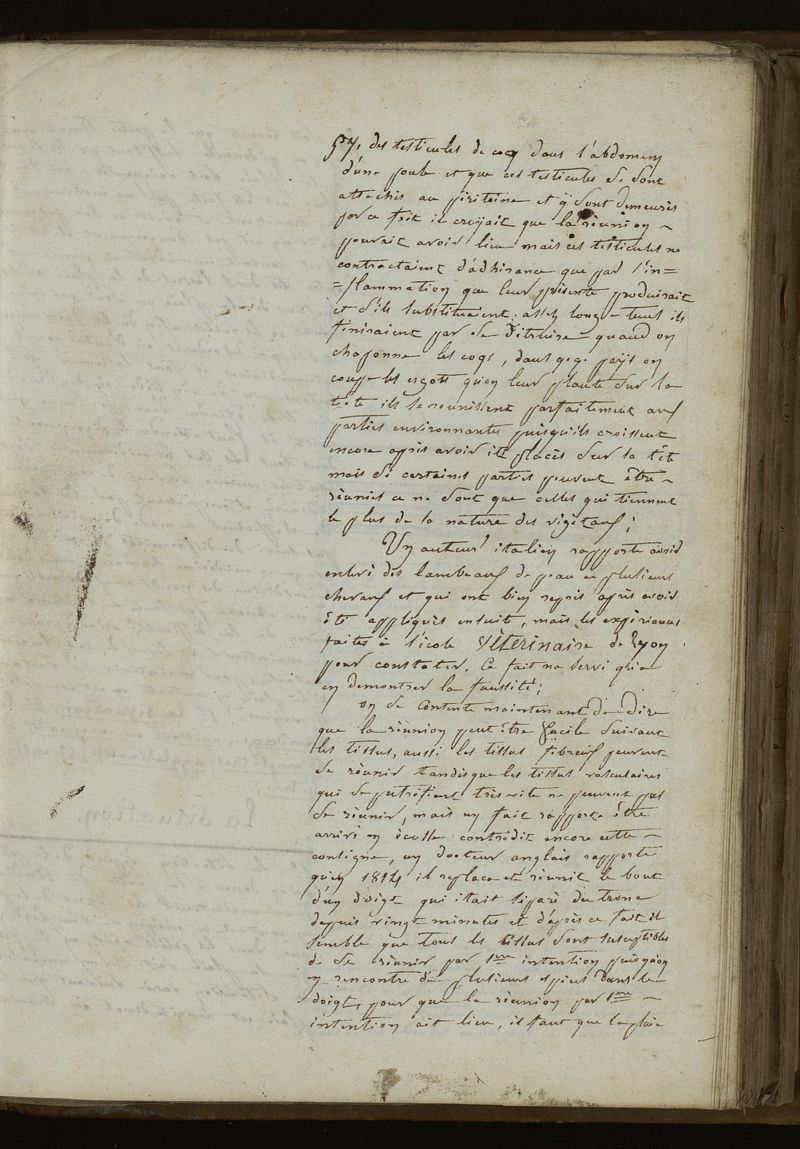 des testicules de coq dans l'abdomen
d'une poule et que ces testicules se sont
attachés au péritoine et y sont demeurés
par ce fait il croyait que la réunion
pouvait avoir lieu mais ces testicules ne
contractaient d'adhérance que par l'in=
=flammation que leur présente produirait
et s'ils substituaient assez long-tems ils
finiraient par se détruire quand on
chaponne les coqs, dans q.q. pays on
coupe les ergots qu'on leur plante sur la
tête ils se réunissent parfaitement aux
parties environnantes puisqu'ils croissent
encore après avoir été placés sur la tête
mais si certaines parties peuvent être
réunies ce ne sont que celles qui tiennent
le plus de la nature des végétaux;
Un auteur italien rapporte avoir
enlevé des lambeaux de peau a plusieurs
chevaux et qui ont bien repris après avoir
été appliqués ensuit, mais les expériences
faites à l'école Vétérinaire de Lyon
pour constater. Ce fait na servi qu'a
en demontrer la fausseté;
on se contente maintenant de dire
que la réunion peut être facile suivant
les tissus, aussi les tissus fibreux peuvent
se réunir tandisque les tissus vasculaires
qui se putréfient très vite ne peuvent pas
se réunir, mais un fait rapporté être
arrivé en écosse contredit encore cette
consigne, un docteur anglais rapporte
qu'en 1814 il replaca et réunit le bout
d'un doigt qui était séparé du tronc
depuis vingt minutes et d'après ce fait il
semble que tous les tissus sont susceptibles
de se réunir par 1ere intention puisqu'on
en rencontre de plusieurs espèces dans le
doigt, pour que la réunion par 1ere
intention ait lieu, il faut que la plaie